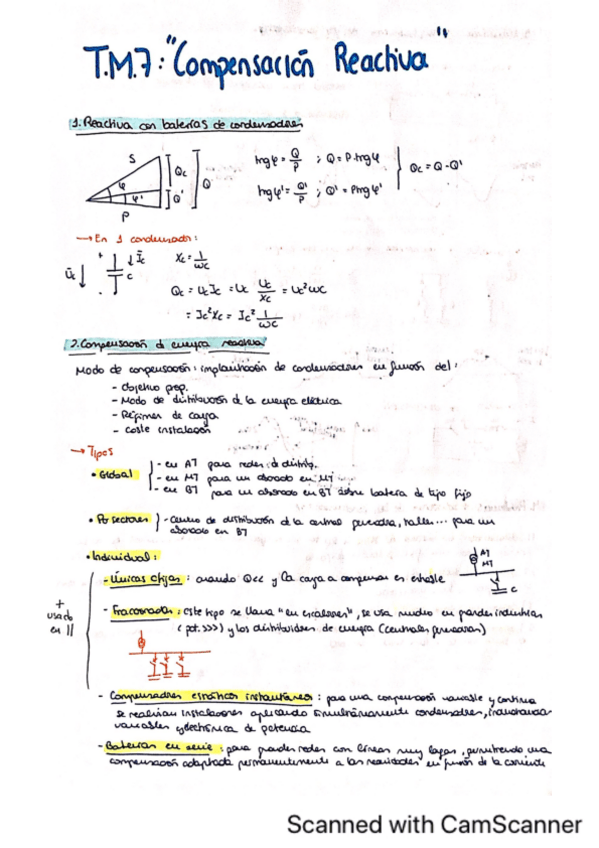 T.M.7: "Compensación Reactiva"
1. Reactiva con baterías de condensadores
S
Qc
Q
φ
φ'
Q'
P
tngφ = Q/P ; Q = P·tngφ
tngφ' = Q'/P ; Q' = Ptngφ'
Qc = Q - Q'
→ En 1 condensador:
Uc
+
Ic
-
C
Xc = 1/ωC
Qc = UcIc = Uc Uc/Xc = Uc²ωC
= Ic²Xc = Ic² 1/ωC
2. Compensación d energía reactiva
Modo de compensación: implantación de condensadores en función del:
- Objetivo prop.
- Modo de distribución de la energía eléctrica
- Régimen de carga
- Coste instalación
→ Tipos
• Global
- en AT para redes d distrib.
- en MT para un abonado en MT
- en BT para un abonado en BT sobre batería de tipo fijo
• Por sectores } - Centro de distribución d la central generadora, taller... para un
abonado en BT
• Individual:
- Únicas o fijas: cuando Qcc y la carga a compensar es estable
AT
MT
C
+
usado
en ||
- Fraccionadas: este tipo se llama "en escalones", se usa mucho en grandes industrias
(pot. >>>) y los distribuidores de energía (centrales generadoras)
- Compensadores estáticos instantáneos: para una compensación variable y continua
se realizan instalaciones aplicando simultáneamente condensadores, inductancias
variables y electrónica de potencia
- Baterías en serie: para grandes redes con líneas muy largas, permitiendo una
compensación adaptada permanentemente a las necesidades en función de la corriente
Scanned with CamScanner